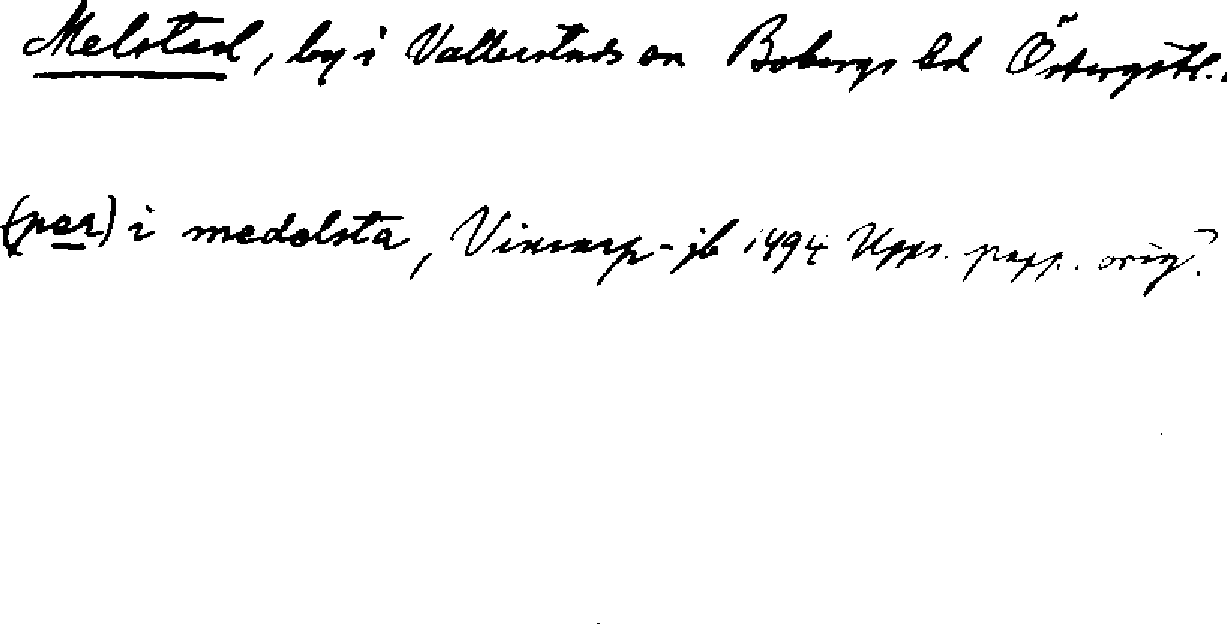 Melstad, by i Vallerstads sn Bobergs hd Östergötl.
(per) i medelsta, Vinnarp-jb 1494 Upps. papp. orig?